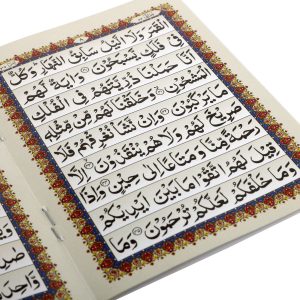 الْقَمَرَ وَلَا الَّيْلُ سَابِقُ النَّهَارِ وَكُلٌّ
فِي فَلَكٍ يَسْبَحُونَ وَآيَةٌ لَهُمْ
أَنَّا حَمَلْنَا ذُرِّيَّتَهُمْ فِي الْفُلْكِ
الْمَشْحُونِ وَخَلَقْنَا لَهُمْ مِنْ مِثْلِهِ
مَا يَرْكَبُونَ وَإِنْ نَشَأْ نُغْرِقْهُمْ فَلَا
صَرِيخَ لَهُمْ وَلَا هُمْ يُنْقَذُونَ إِلَّا
رَحْمَةً مِنَّا وَمَتَاعًا إِلَى حِينٍ وَإِذَا
قِيلَ لَهُمُ اتَّقُوا مَا بَيْنَ أَيْدِيكُمْ
وَمَا خَلْفَكُمْ لَعَلَّكُمْ تُرْحَمُونَ وَمَا